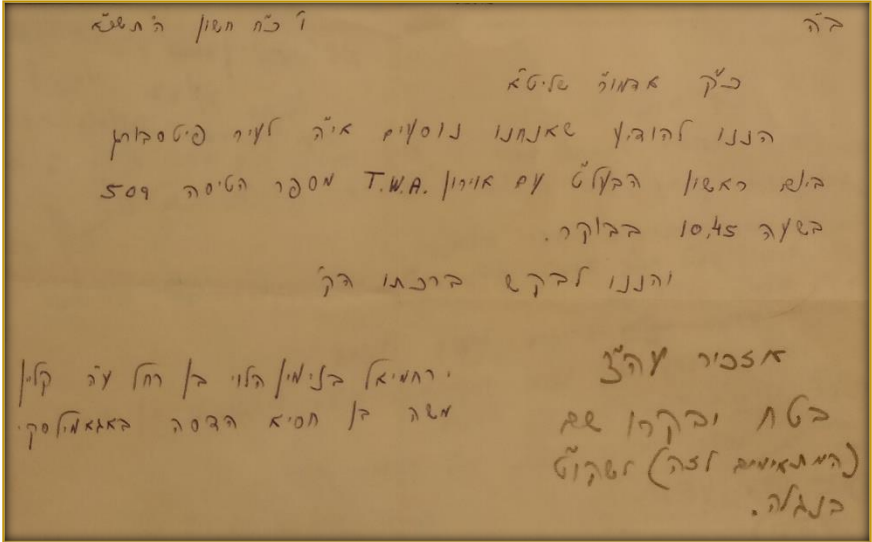 ב"ה
ו' כ"ח חשון ה'תשכ"א
כ"ק אדמו"ר שליט"א
הננו להודיע שאנחנו נוסעים אי"ה לעיר פיטסבורג
ביום ראשון הבעל"ט עם אוירון T.W.A. מספר הטיסה 509
בשעה 10.45 בבוקר.
והננו לבקש ברכתו הק'
ירחמיאל בנימין הלוי בן רחל ע"ה קליין
משה בן חסיא הדסה באגאמילסקי.
אזכיר עה"צ
בטח יבקרו שם
(המתאימים לזה) לשקו"ט
בנגלה.